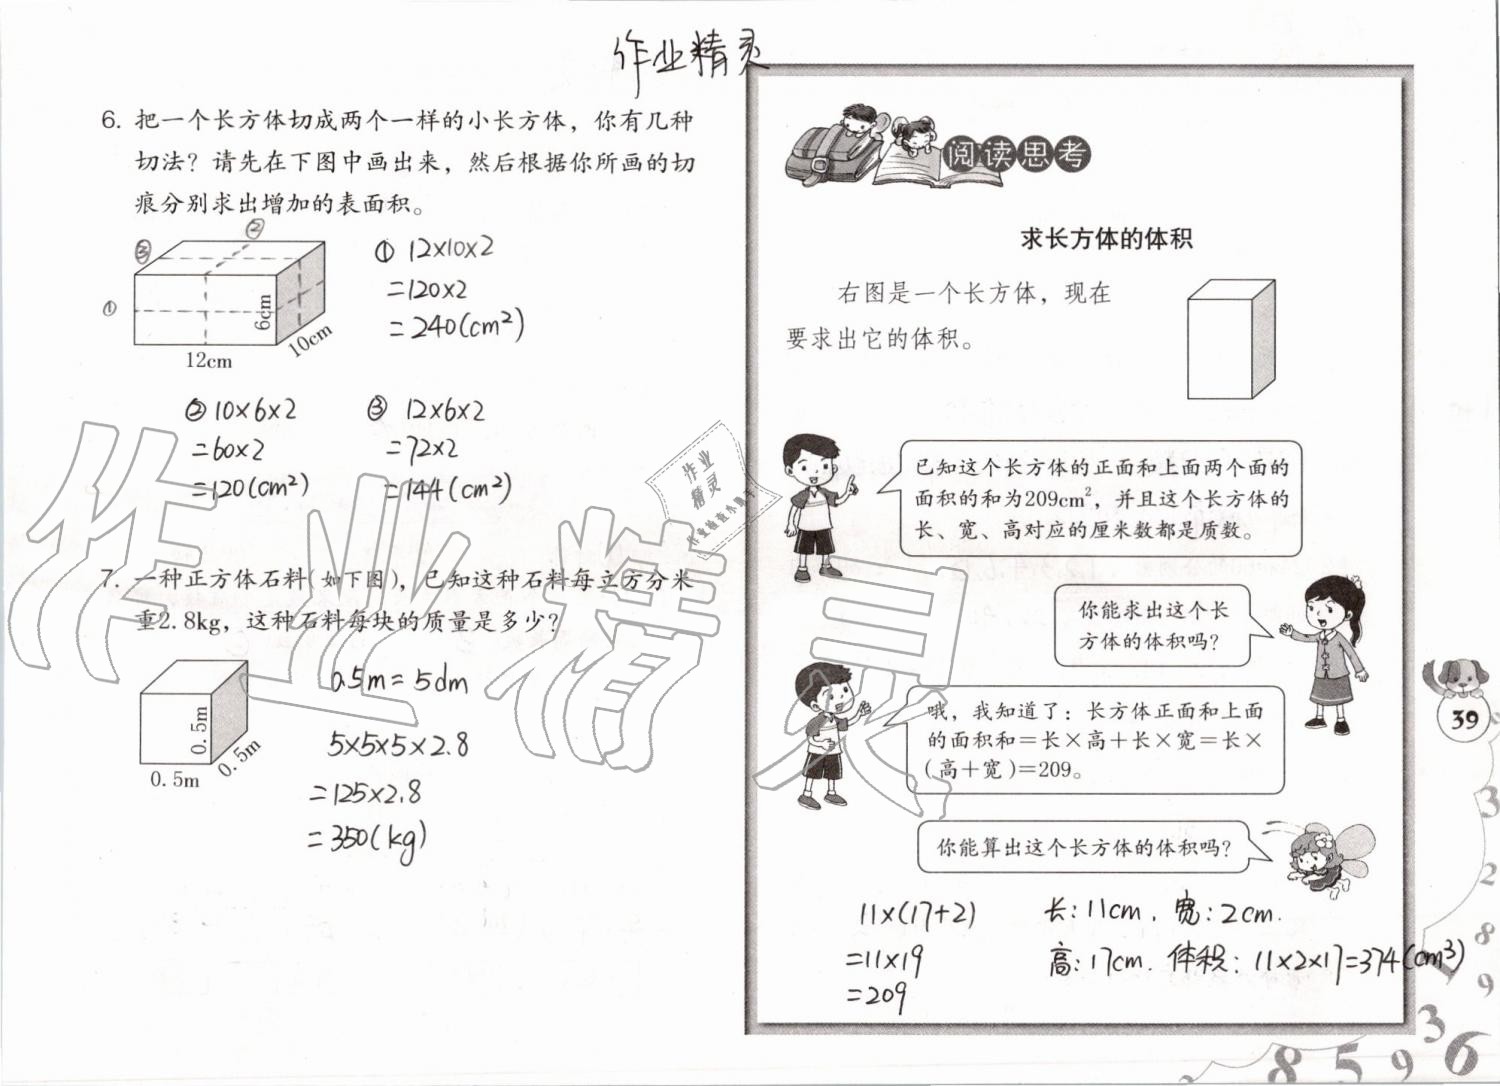 作业精灵
6. 把一个长方体切成两个一样的小长方体，你有几种
切法？请先在下图中画出来，然后根据你所画的切
痕分别求出增加的表面积。
②
③
①
6cm
10cm
12cm
① 12×10×2
=120×2
=240(cm²)
② 10×6×2
=60×2
=120(cm²)
③ 12×6×2
=72×2
=144(cm²)
作业
精灵
7. 一种正方体石料(如下图)，已知这种石料每立方分米
重2.8kg，这种石料每块的质量是多少？
0.5m
0.5m
0.5m
0.5m=5dm
5×5×5×2.8
=125×2.8
=350(kg)
作业精灵
阅读思考
求长方体的体积
右图是一个长方体，现在
要求出它的体积。
已知这个长方体的正面和上面两个面的
面积的和为209cm²，并且这个长方体的
长、宽、高对应的厘米数都是质数。
你能求出这个长
方体的体积吗？
哦，我知道了：长方体正面和上面
的面积和＝长×高＋长×宽＝长×
(高＋宽)＝209。
你能算出这个长方体的体积吗？
11×(17+2)
=11×19
=209
长：11cm．宽：2cm．
高：17cm．体积：11×2×17=374(cm³)
39
3
2
8
1
9
3
6
8 5 9